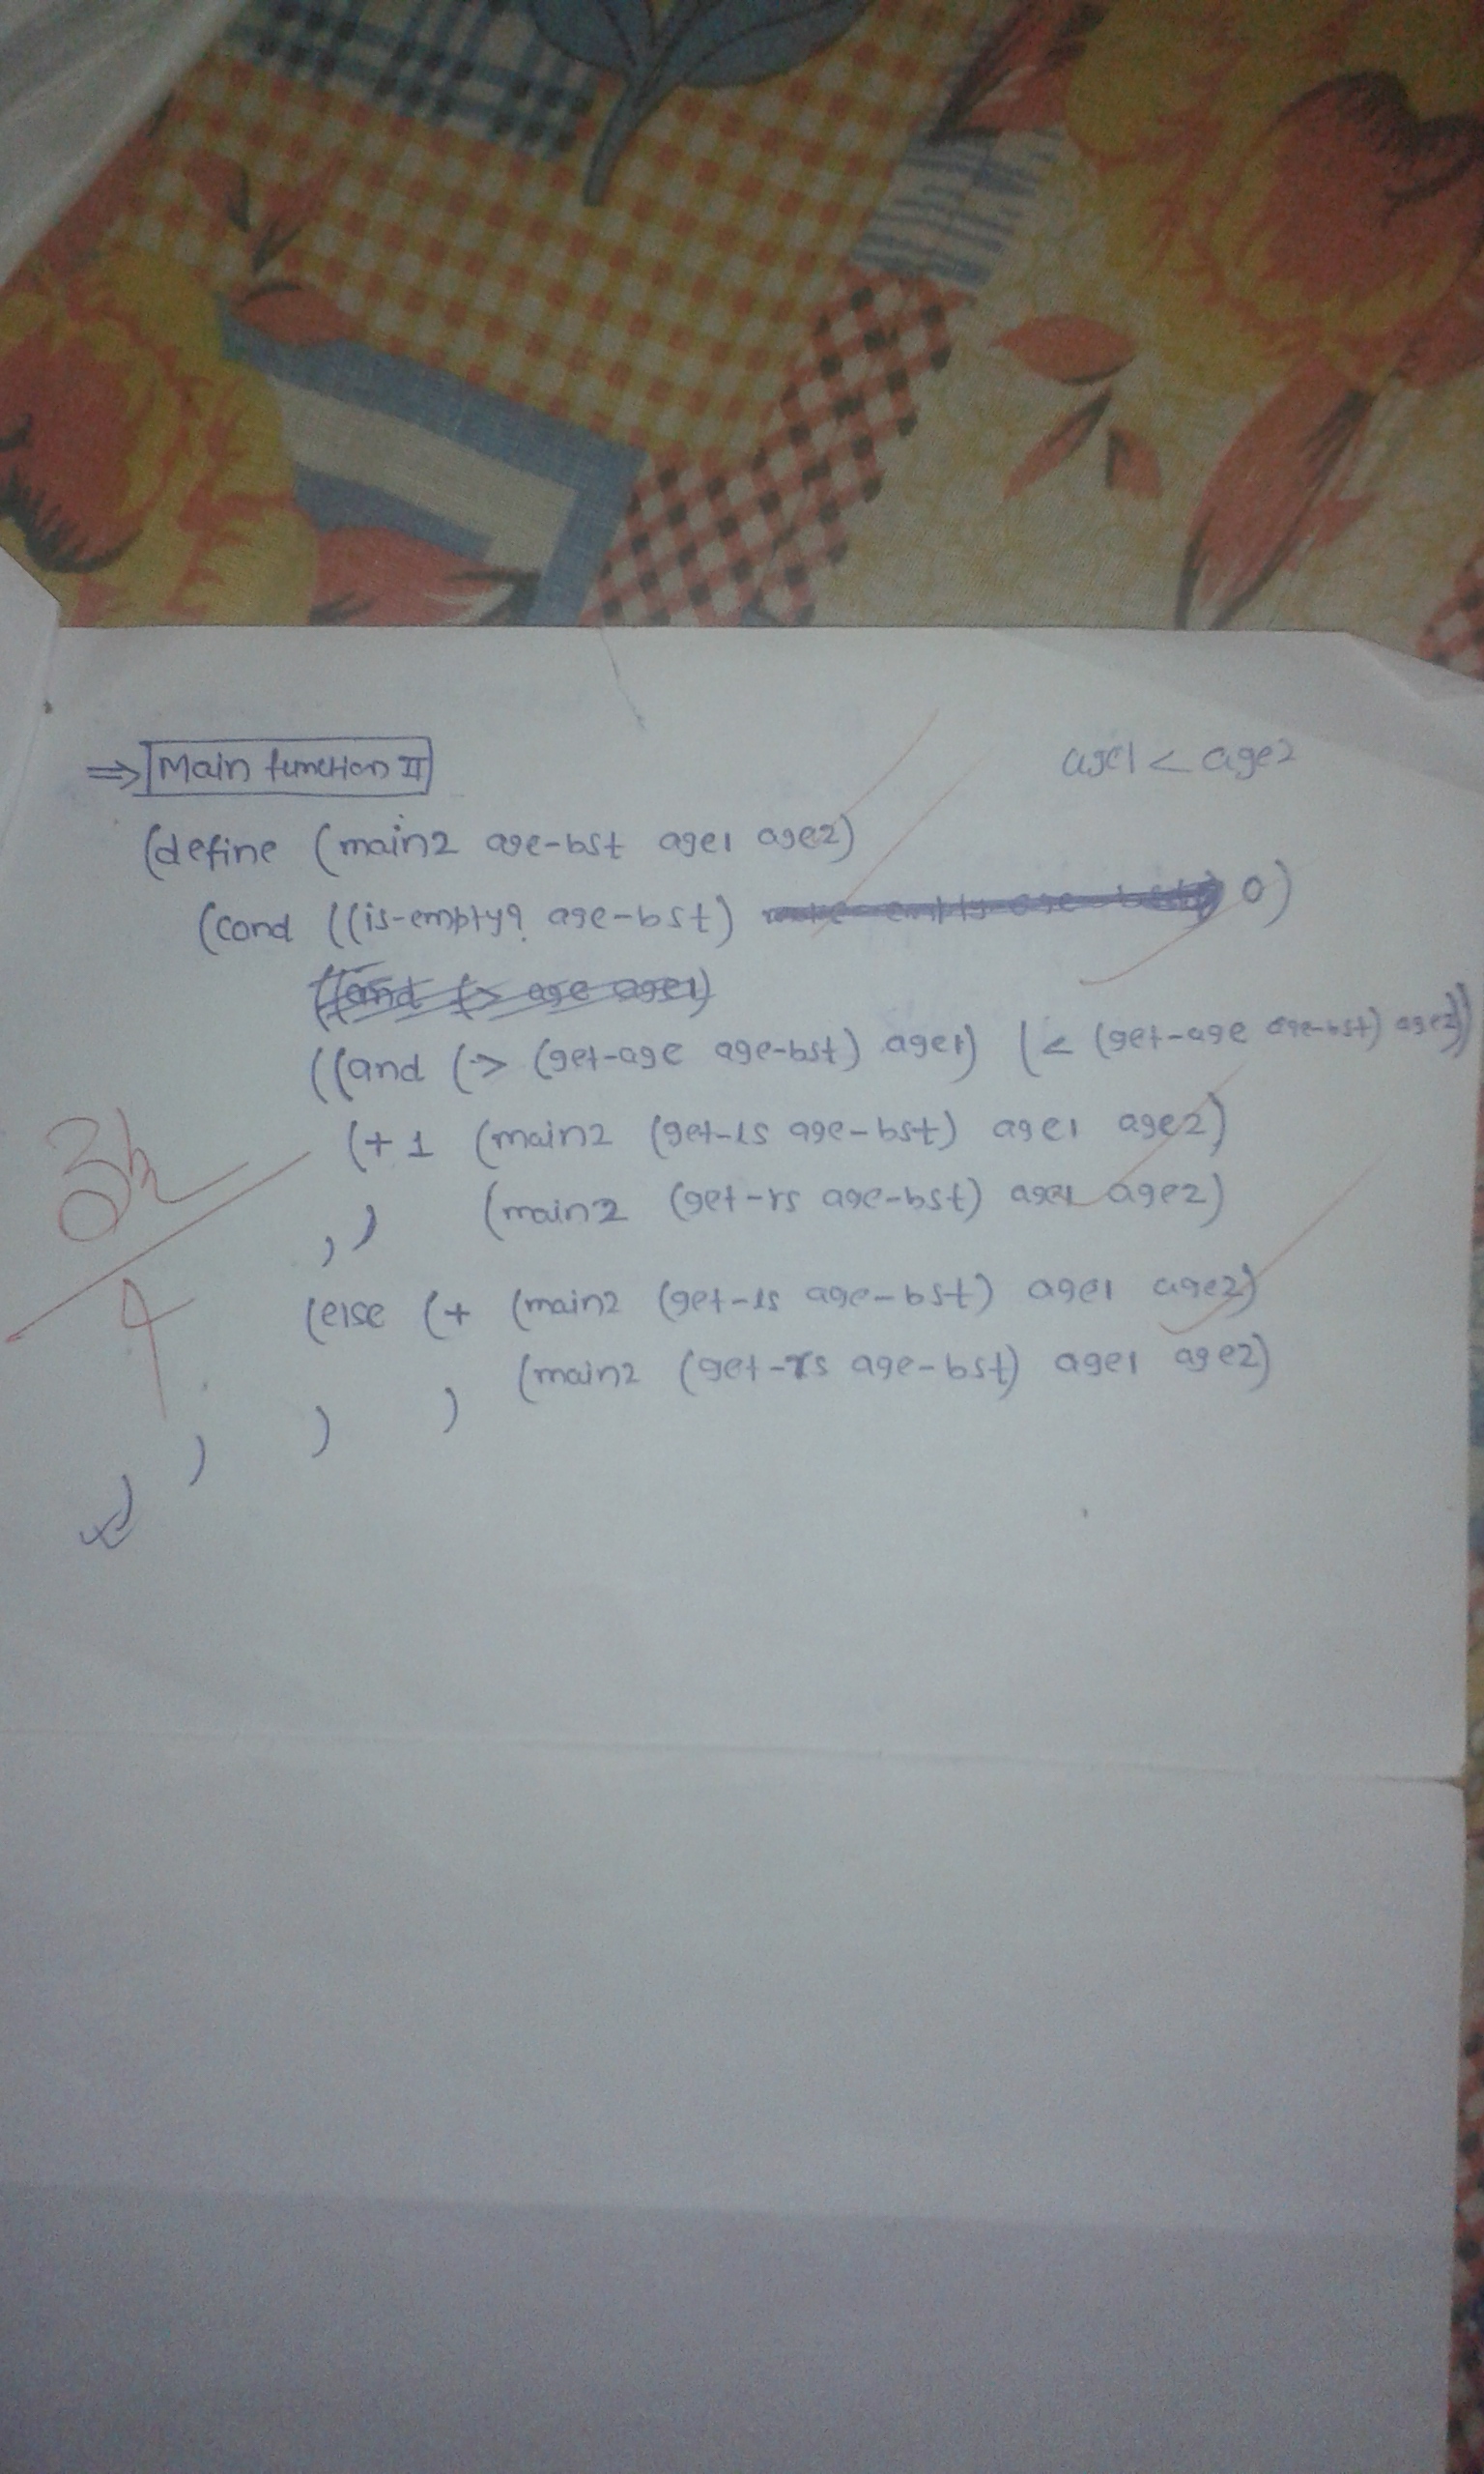 ⇒ Main function II
age1 < age2
(define (main2 age-bst age1 age2)
(cond ((is-empty? age-bst) 0)
((and (> age age1)
((and (> (get-age age-bst) age1) (< (get-age age-bst) age2))
(+ 1 (main2 (get-ls age-bst) age1 age2)
(main2 (get-rs age-bst) age1 age2)
))
(else (+ (main2 (get-ls age-bst) age1 age2)
(main2 (get-rs age-bst) age1 age2)
)
)
)
)